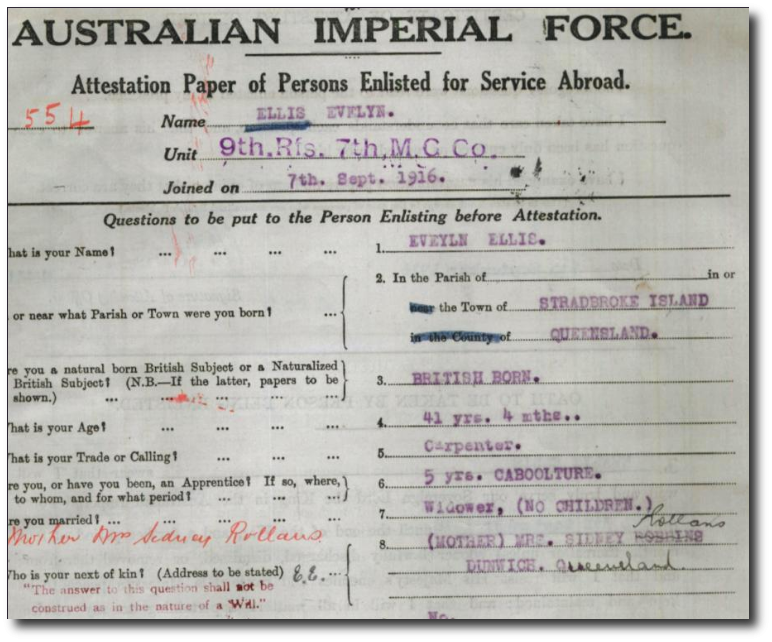 AUSTRALIAN IMPERIAL FORCE.
Attestation Paper of Persons Enlisted for Service Abroad.
554
Name ELLIS EVELYN.
Unit 9th.Rfs. 7th,M.G Co.
Joined on 7th. Sept. 1916.
Questions to be put to the Person Enlisting before Attestation.
hat is your Name? ... ... ... ... 1. EVEYLN ELLIS.
2. In the Parish of in or
or near what Parish or Town were you born? ... near the Town of STRADBROKE ISLAND
in the County of QUEENSLAND.
re you a natural born British Subject or a Naturalized
British Subject? (N.B.—If the latter, papers to be 3. BRITISH BORN.
shown.) ... ... ... ... ...
hat is your Age? ... ... ... 4. 41 yrs. 4 mths..
hat is your Trade or Calling? ... ... ... 5. Carpenter.
re you, or have you been, an Apprentice? If so, where, 6. 5 yrs. CABOOLTURE.
to whom, and for what period? ... ... ...
re you married? ... ... ... ... ... 7 Widower, (NO CHILDREN.)
Rollans
Mother Mrs Sidney Rollans 8. (MOTHER) MRS. SIDNEY ROBBINS
DUNWICH. Queensland.
ho is your next of kin? (Address to be stated) E.E. ...
"The answer to this question shall not be
construed as in the nature of a Will."
No.